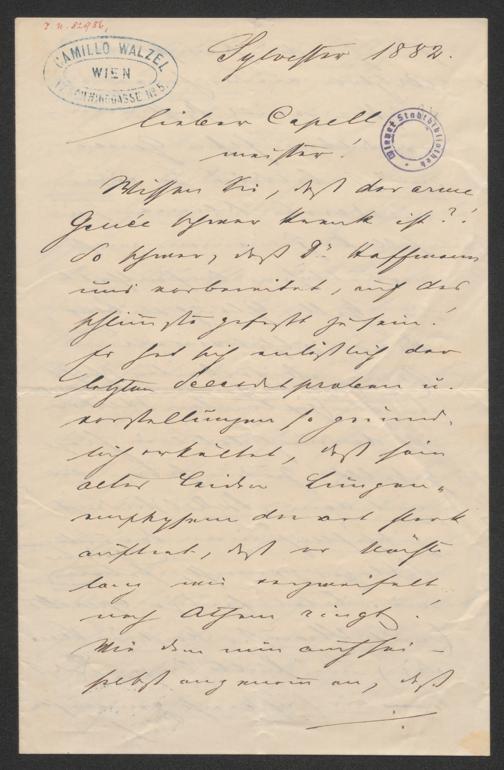 J. N. 82986,
CAMILLO WALZEL
WIEN
GASSE No 5.
Wiener Stadtbibliothek
Sylvester 1882.
lieber Capell
meister!
Wissen Sie, daß der arme
Genée schwer krank ist?!
So schwer, daß Dr Hoffmann
uns vorbereitet, auf das
schlimmste gefaßt zu sein!
Er hat sich anläßlich der
letzten proben u.
vorstellungen so gründ-
lich erkältet, daß sein
altes Leiden Lungen-
emphysem derart stark
auftrat, daß er Nächte
lang wie verzweifelt
nach Athem ringt!
Wie dem nun auch sei –
selbst angenom̄en, daß